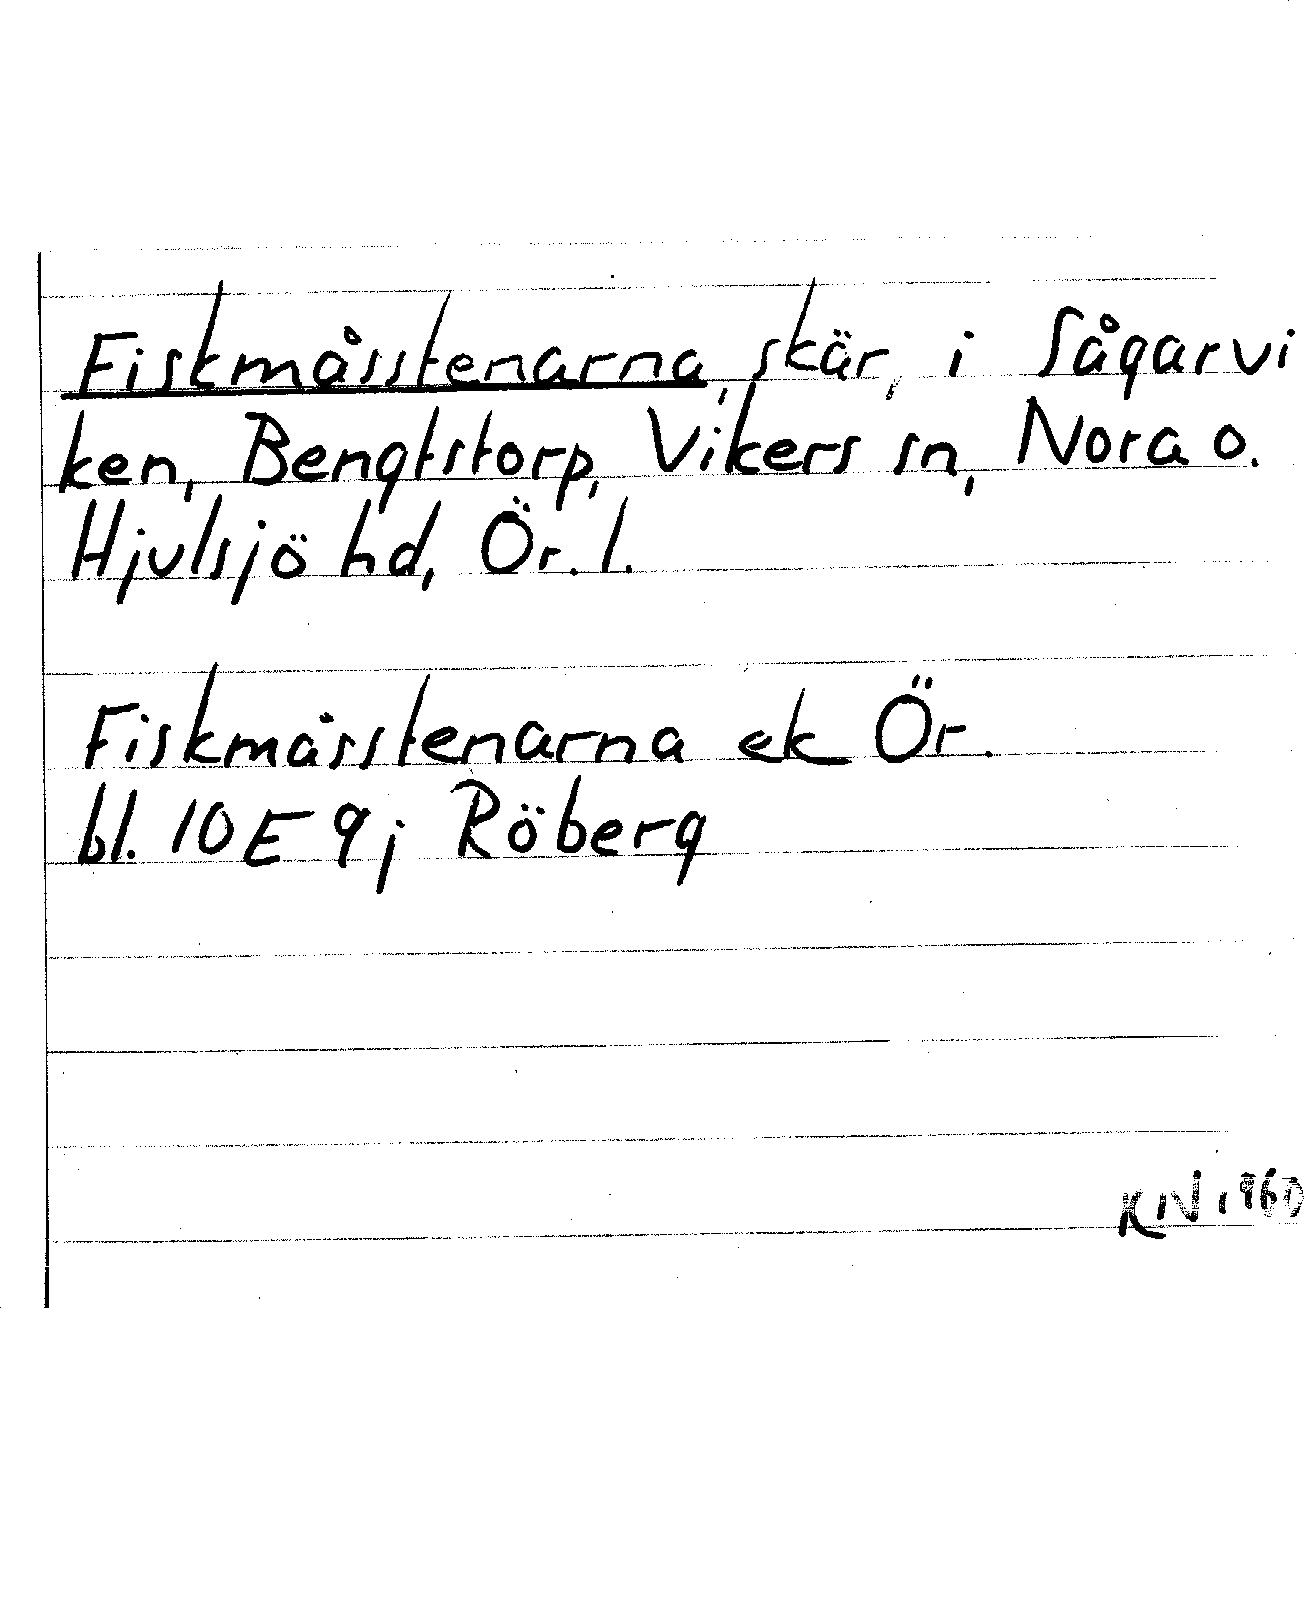 Fiskmåsstenarna, skär, i Sågarvi
ken, Bengtstorp, Vikers sn, Nora o.
Hjulsjö hd, Ör. l.
Fiskmåsstenarna ek Ör.
bl. 10E 9j Röberg
KN 1960